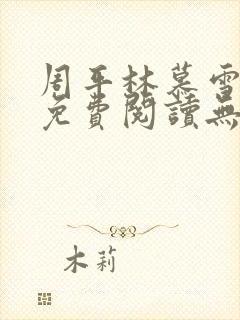 周平林慕雪
免費閱讀無
木莉